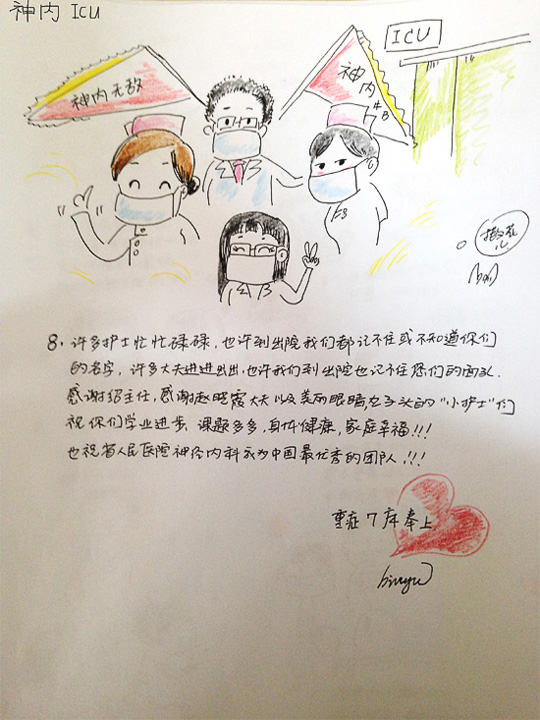 神内 ICU
ICU
神内无敌
神内
8. 许多护士忙忙碌碌,也许到出院我们都记不住或不知道你们
的名字,许多大夫进进出出,也许我们到出院也记不住您们的面孔.
感谢绍主任,感谢赵晓霞大夫以及美丽眼睛,包子头的“小护士”们
祝你们学业进步 课题多多,身体健康,家庭幸福!!!
也祝省人民医院神经内科成为中国最优秀的团队!!!
重症7床奉上